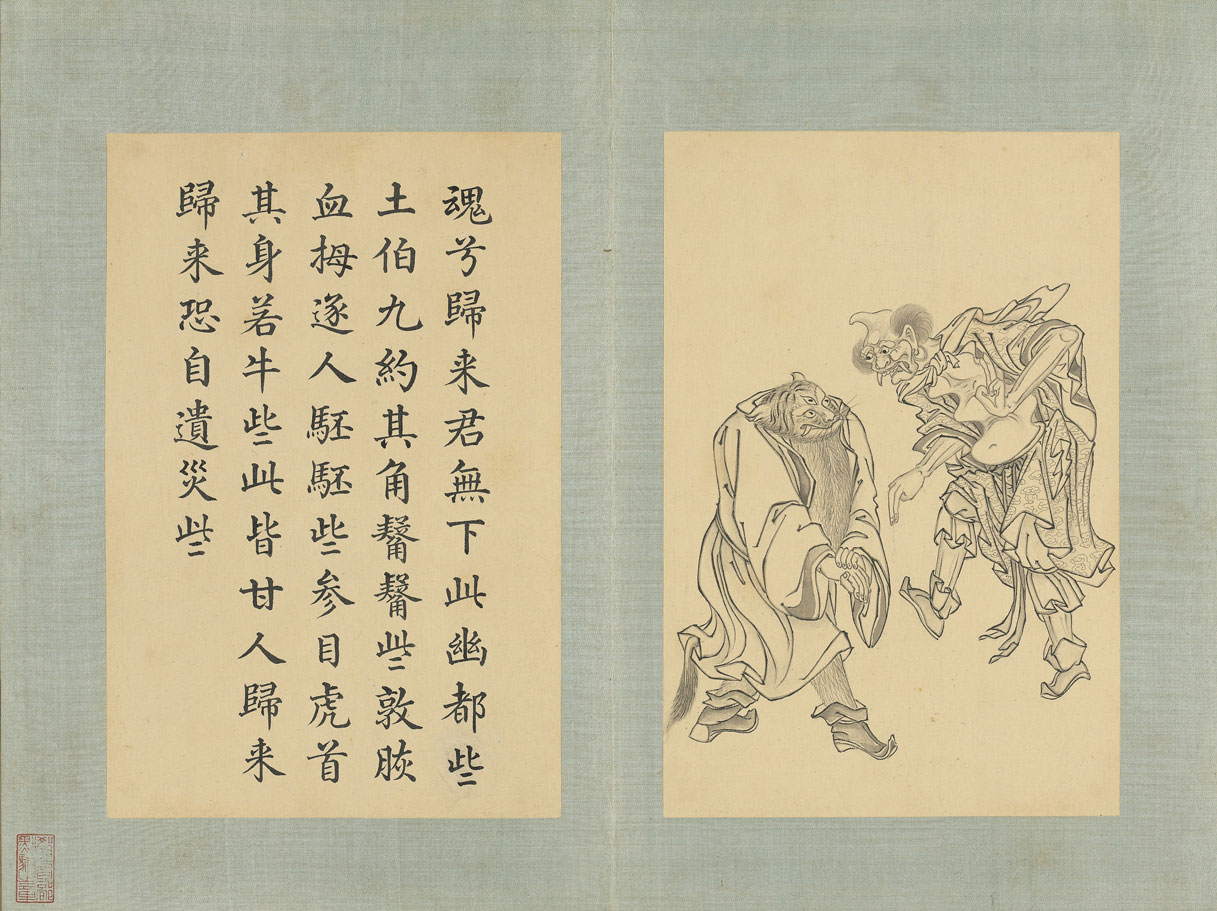 魂兮歸来君無下此幽都些
土伯九約其角觺觺些敦脄
血拇逐人駓駓些参目虎首
其身若牛些此皆甘人歸来
歸来恐自遺災些